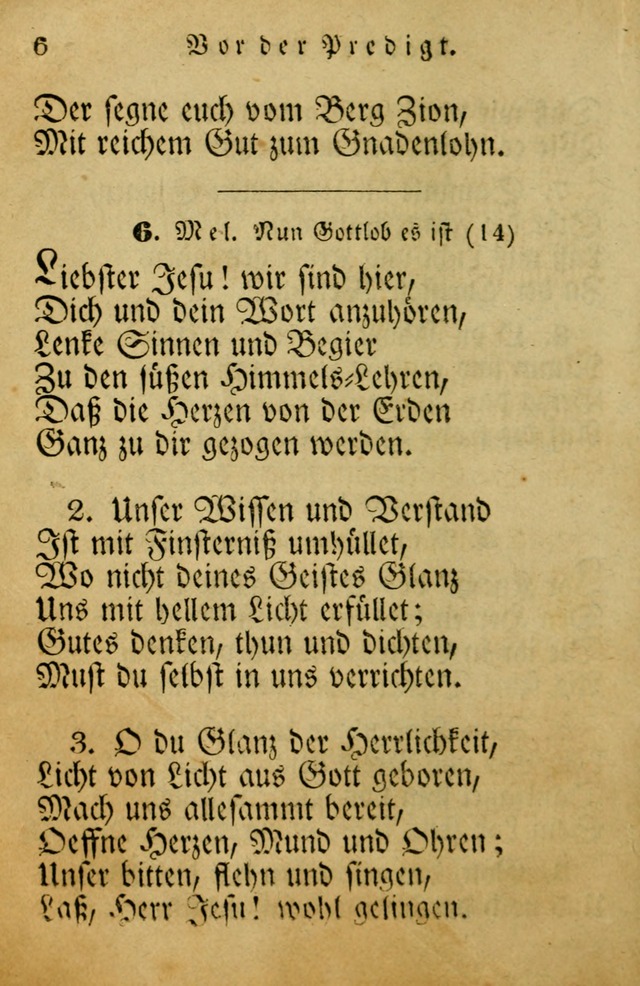 6 Vor der Predigt.
Der segne euch vom Berg Zion,
Mit reichem Gut zum Gnadenlohn.
6. Mel. Nun Gottlob es ist (14)
Liebster Jesu! wir sind hier,
Dich und dein Wort anzuhören,
Lenke Sinnen und Begier
Zu den süßen Himmels-Lehren,
Daß die Herzen von der Erden
Ganz zu dir gezogen werden.
2. Unser Wissen und Verstand
Ist mit Finsterniß umhüllet,
Wo nicht deines Geistes Glanz
Uns mit hellem Licht erfüllet;
Gutes denken, thun und dichten,
Must du selbst in uns verrichten.
3. O du Glanz der Herrlichkeit,
Licht von Licht aus Gott geboren,
Mach uns allesammt bereit,
Oeffne Herzen, Mund und Ohren;
Unser bitten, flehn und singen,
Laß, Herr Jesu! wohl gelingen.